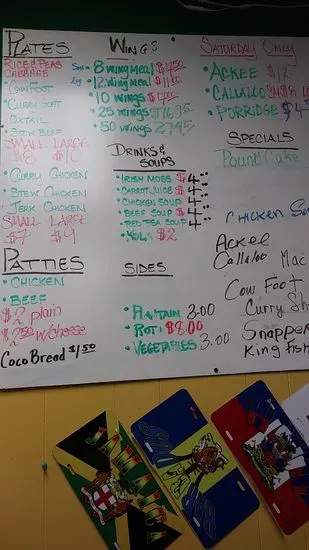 PLATES
RICE & PEAS
CABBAGE
COW FOOT
CURRY GOAT
OXTAIL
STEW BEEF
SMALL LARGE
$8 $10
CURRY CHICKEN
STEW CHICKEN
JERK CHICKEN
SMALL LARGE
$7 $9
PATTIES
• CHICKEN
• BEEF
$2 plain
$2.50 w/cheese
COCO BREAD $1.50
WINGS
Sm • 8 WING MEAL
Lg • 12 WING MEAL
• 10 WINGS
• 25 WINGS
• 50 WINGS
DRINKS &
SOUPS
• IRISH MOSS $4.00
• CARROT JUICE $4.00
• CHICKEN SOUP $4.00
• BEEF SOUP $4.00
• RED PEA SOUP 4.00
$2
SIDES
• PLANTAIN 3.00
• ROTI $8.00
• VEGETABLES 3.00
SATURDAY ONLY
• ACKEE $12
• CALLALOO
• PORRIDGE $4
SPECIALS
Pound Cake
CHICKEN
Ackee
Callaloo Mac
Cow Foot
Curry
Snapper
King Fish
JAMAICA